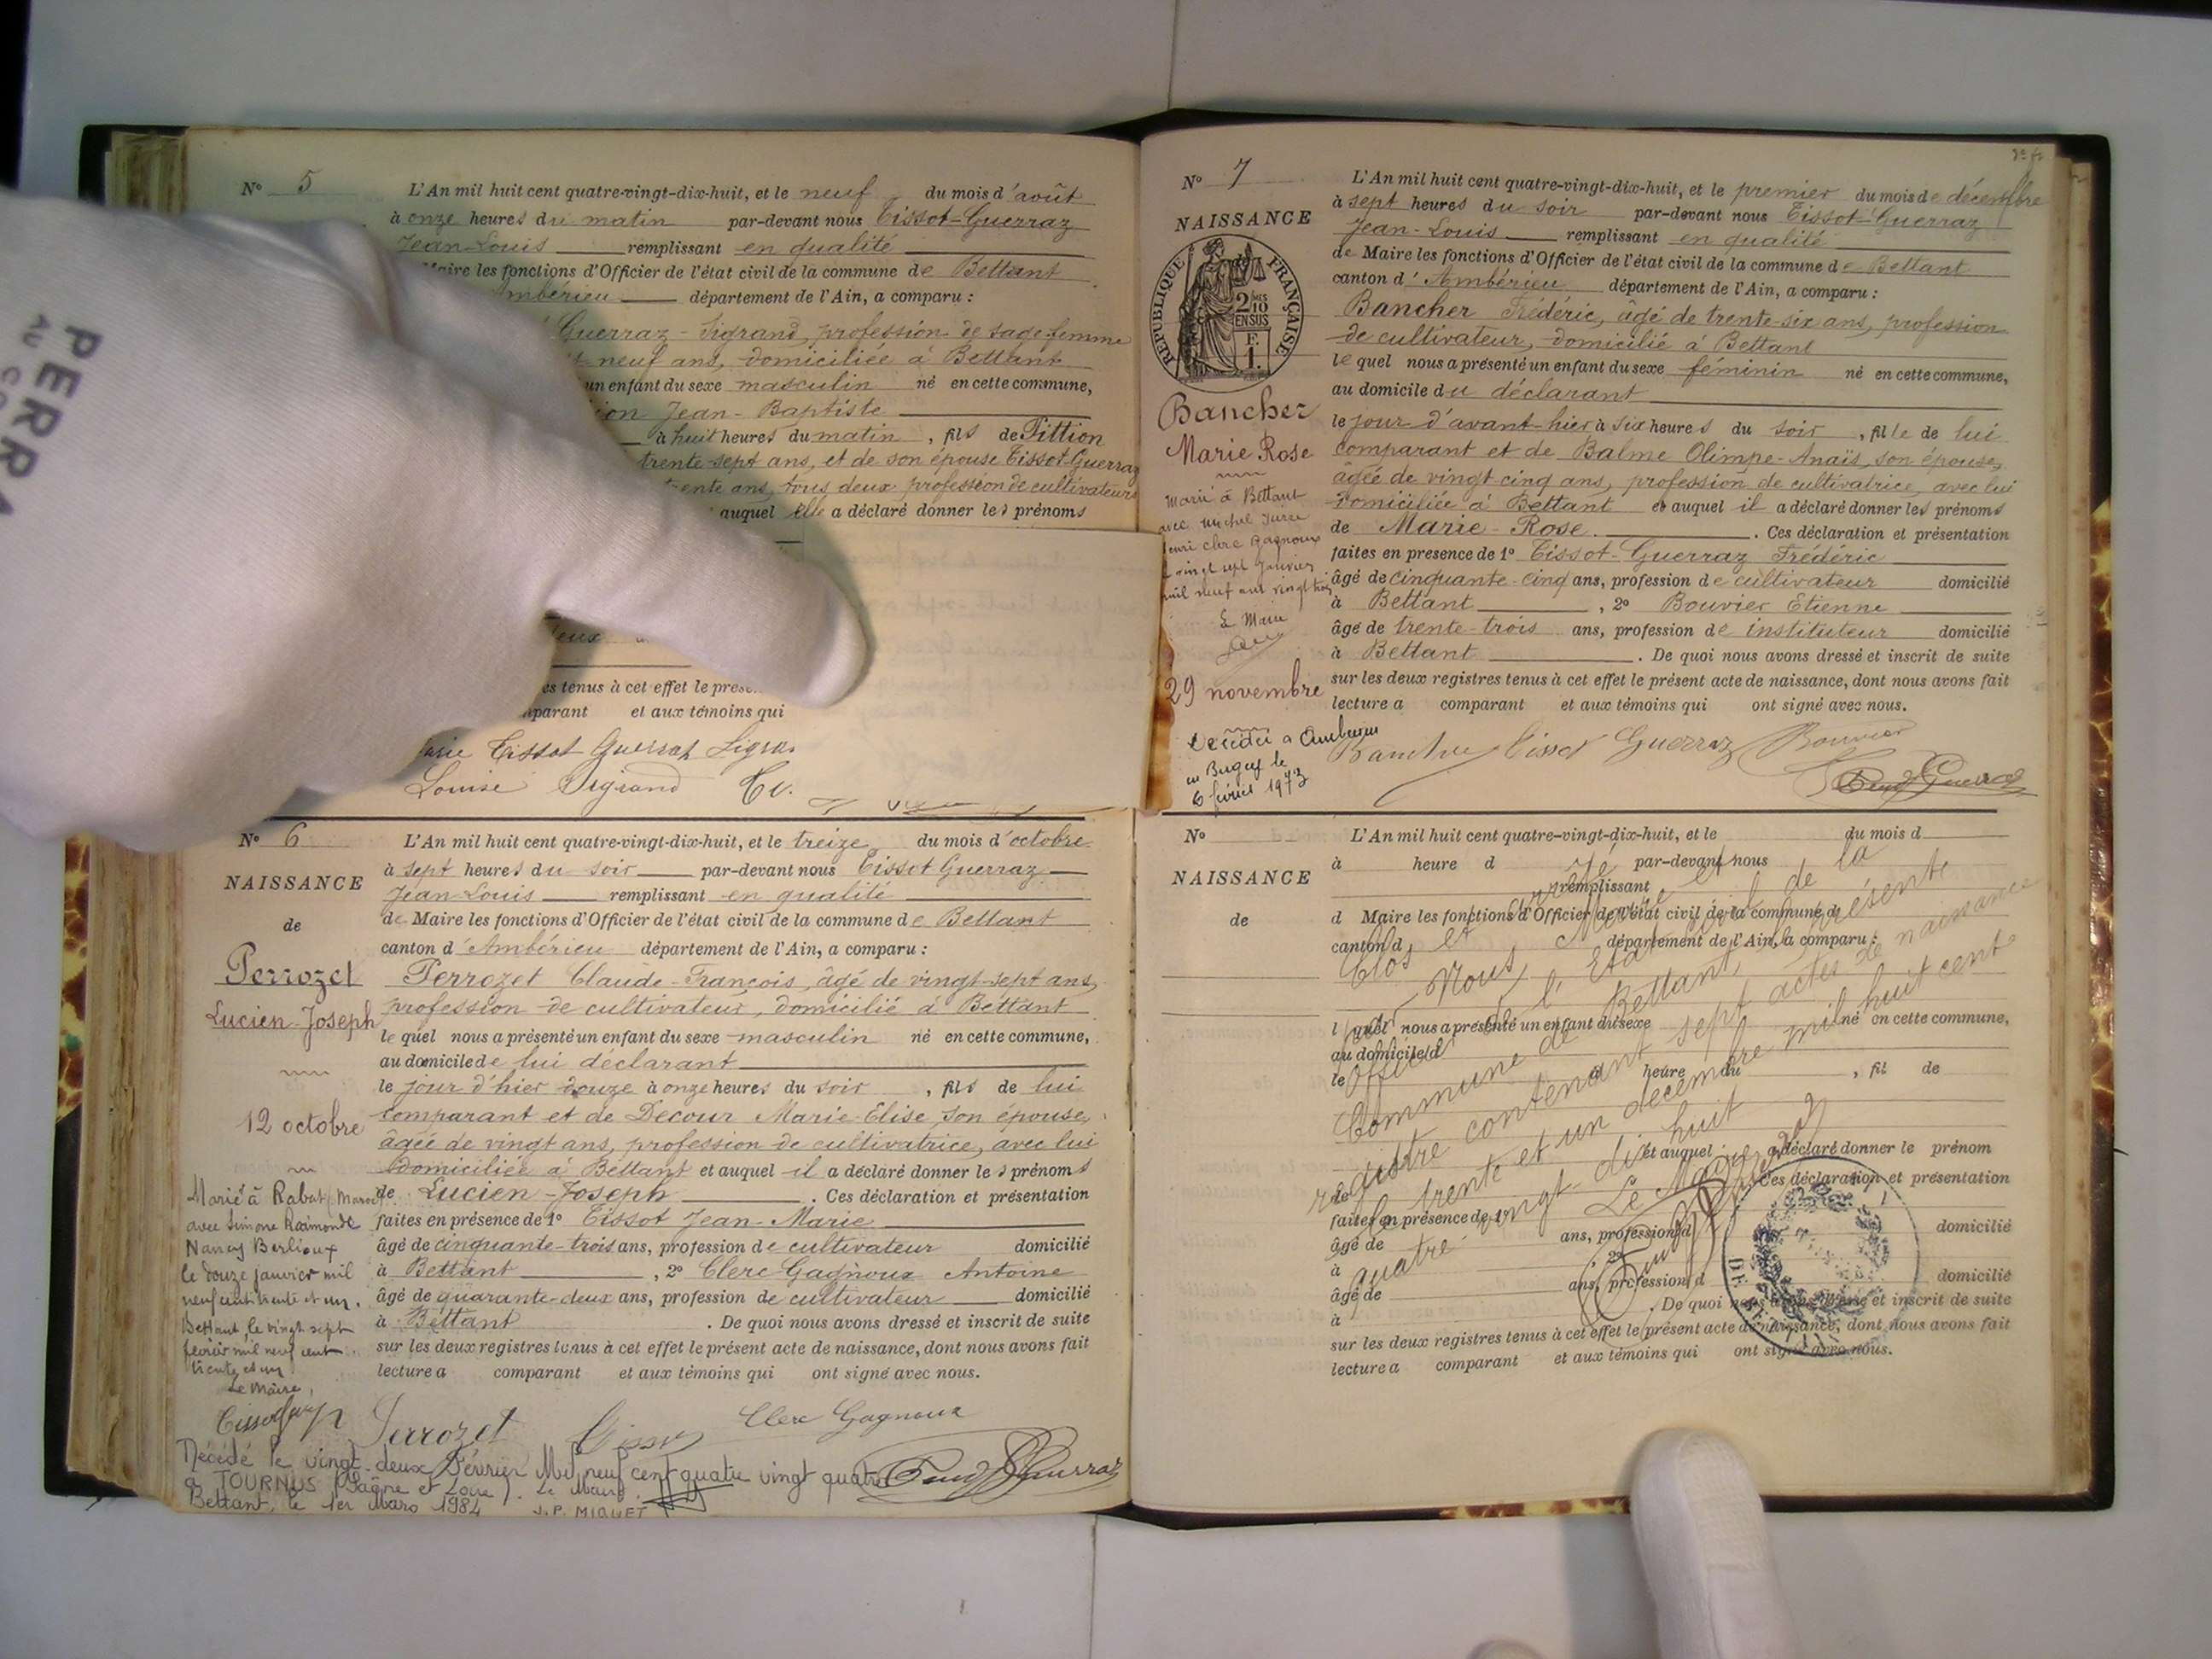 N° 5
L'An mil huit cent quatre-vingt-dix-huit, et le neuf du mois d'août
à onze heures du matin par-devant nous Tissot-Guerraz
Jean-Louis remplissant en qualité
Maire les fonctions d'Officier de l'état civil de la commune de Bettant
Ambérieu département de l'Ain, a comparu :
Guerraz - Sigrand, profession de sage femme
neuf ans, domiciliée à Bettant
un enfant du sexe masculin né en cette commune,
Jean-Baptiste
à huit heures du matin, fils de Pittion
trente-sept ans, et de son épouse Tissot-Guerraz
trente ans, tous deux profession de cultivateurs
auquel elle a déclaré donner les prénoms
deux
es tenus à cet effet le prése
mparant et aux témoins qui
Tissot Guerraz
Louise Sigrand
N° 6
NAISSANCE
de
Perrozet
Lucien-Joseph
12 octobre
L'An mil huit cent quatre-vingt-dix-huit, et le treize du mois d'octobre
à sept heures du soir par-devant nous Tissot Guerraz
Jean-Louis remplissant en qualité
de Maire les fonctions d'Officier de l'état civil de la commune de Bettant
canton d'Ambérieu département de l'Ain, a comparu :
Perrozet Claude-François, âgé de vingt-sept ans,
profession de cultivateur, domicilié à Bettant
lequel nous a présenté un enfant du sexe masculin né en cette commune,
au domicile de lui déclarant
le jour d'hier douze à onze heures du soir, fils de lui
comparant et de Decour Marie-Elise, son épouse,
âgée de vingt ans, profession de cultivatrice, avec lui
domiciliée à Bettant et auquel il a déclaré donner les prénoms
de Lucien-Joseph. Ces déclaration et présentation
faites en présence de 1° Tissot Jean-Marie
âgé de cinquante-trois ans, profession de cultivateur domicilié
à Bettant, 2° Clerc-Gagnoux Antoine
âgé de quarante-deux ans, profession de cultivateur domicilié
à Bettant. De quoi nous avons dressé et inscrit de suite
sur les deux registres tenus à cet effet le présent acte de naissance, dont nous avons fait
lecture a comparant et aux témoins qui ont signé avec nous.
Marié à Rabat (Maroc)
avec Simone Raimonde
Nancy Berlioux
le douze janvier mil
neuf cent trente et un.
Bettant, le vingt sept
février mil neuf cent
trente et un
Le Maire,
Perrozet Tissot Clerc Gagnoux
Décédé le vingt-deux Février Mil neuf cent quatre vingt quatre
à TOURNUS (Saône et Loire). Le Maire
Bettant, le 1er Mars 1984 J.P. MIQUET
N° 7
NAISSANCE
RÉPUBLIQUE FRANÇAISE
2/10
EN SUS
F.
1.
Bancher
Marie Rose
Marié à Bettant
avec Michel
Henri Clerc Gagnoux
le vingt sept janvier
mil neuf cent vingt
Le Maire
29 novembre
Décédée à Ambérieu
en Bugey le
6 février 1973
L'An mil huit cent quatre-vingt-dix-huit, et le premier du mois de décembre
à sept heures du soir par-devant nous Tissot-Guerraz
Jean-Louis remplissant en qualité
de Maire les fonctions d'Officier de l'état civil de la commune de Bettant
canton d'Ambérieu département de l'Ain, a comparu :
Bancher Frédéric, âgé de trente-six ans, profession
de cultivateur, domicilié à Bettant
lequel nous a présenté un enfant du sexe féminin né en cette commune,
au domicile du déclarant
le jour d'avant-hier à six heures du soir, fille de lui
comparant et de Balme Olimpe-Anaïs, son épouse,
âgée de vingt cinq ans, profession de cultivatrice, avec lui
domiciliée à Bettant et auquel il a déclaré donner les prénoms
de Marie-Rose. Ces déclaration et présentation
faites en présence de 1° Tissot-Guerraz Frédéric
âgé de cinquante-cinq ans, profession de cultivateur domicilié
à Bettant, 2° Bouvier Etienne
âgé de trente-trois ans, profession de instituteur domicilié
à Bettant. De quoi nous avons dressé et inscrit de suite
sur les deux registres tenus à cet effet le présent acte de naissance, dont nous avons fait
lecture a comparant et aux témoins qui ont signé avec nous.
Bancher Tissot Guerraz Bouvier
N°
NAISSANCE
de
L'An mil huit cent quatre-vingt-dix-huit, et le du mois d
à heure d par-devant nous
remplissant
d Maire les fonctions d'Officier de l'état civil de la commune d
canton d département de l'Ain, a comparu :
l quel nous a présenté un enfant du sexe né en cette commune,
au domicile d
le à heure du, fil de
et auquel a déclaré donner le prénom
de Ces déclaration et présentation
faites en présence de 1°
âgé de ans, profession d domicilié
à, 2°
âgé de ans, profession d domicilié
à. De quoi nous avons dressé et inscrit de suite
sur les deux registres tenus à cet effet le présent acte de naissance, dont nous avons fait
lecture a comparant et aux témoins qui ont signé avec nous.
Clos et arrêté
par Nous, Maire et
Officier de l'Etat civil de la
Commune de Bettant, le présent
registre contenant sept actes de naissance
le trente et un décembre mil huit cent
quatre-vingt-dix huit
Le Maire